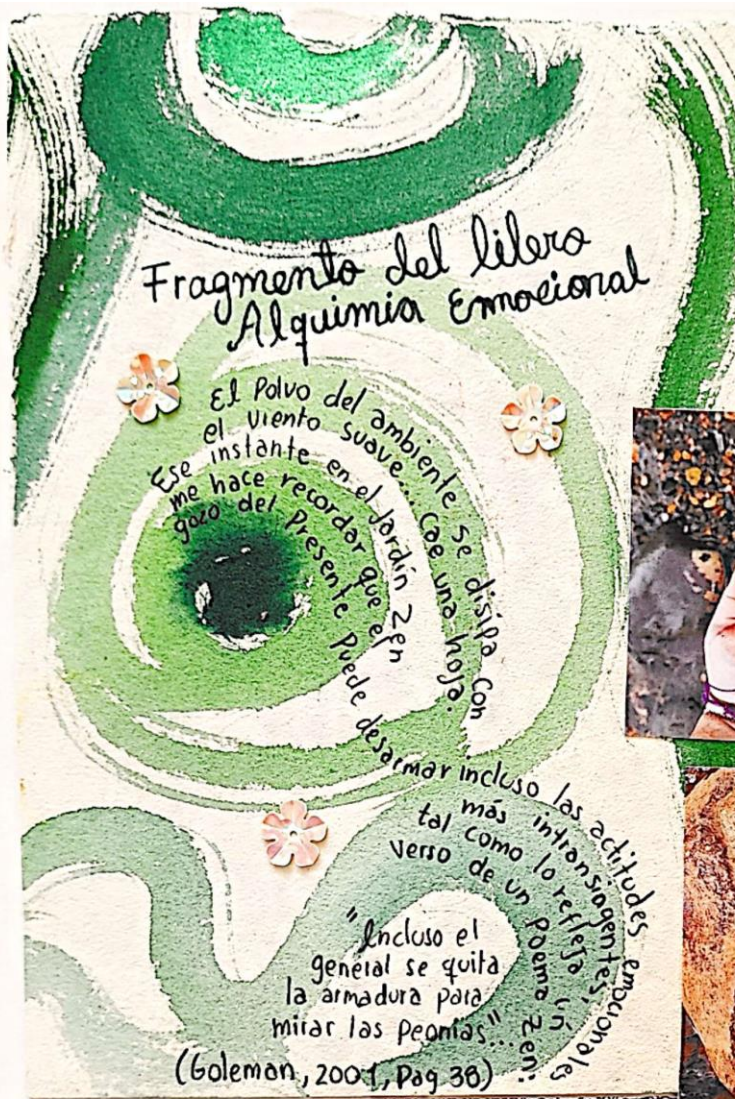 Fragmento del libro
Alquimia Emocional
El Polvo del ambiente se disipa con
el viento suave... Cae una hoja.
Ese instante en el Jardín Zen
me hace recordar que el
gozo del Presente Puede desarmar incluso las actitudes emocionales
más intransigentes,
tal como lo refleja un
verso de un Poema Zen:
"Incluso el
general se quita
la armadura para
mirar las Peonías"...
(Goleman, 2001, Pag 38)